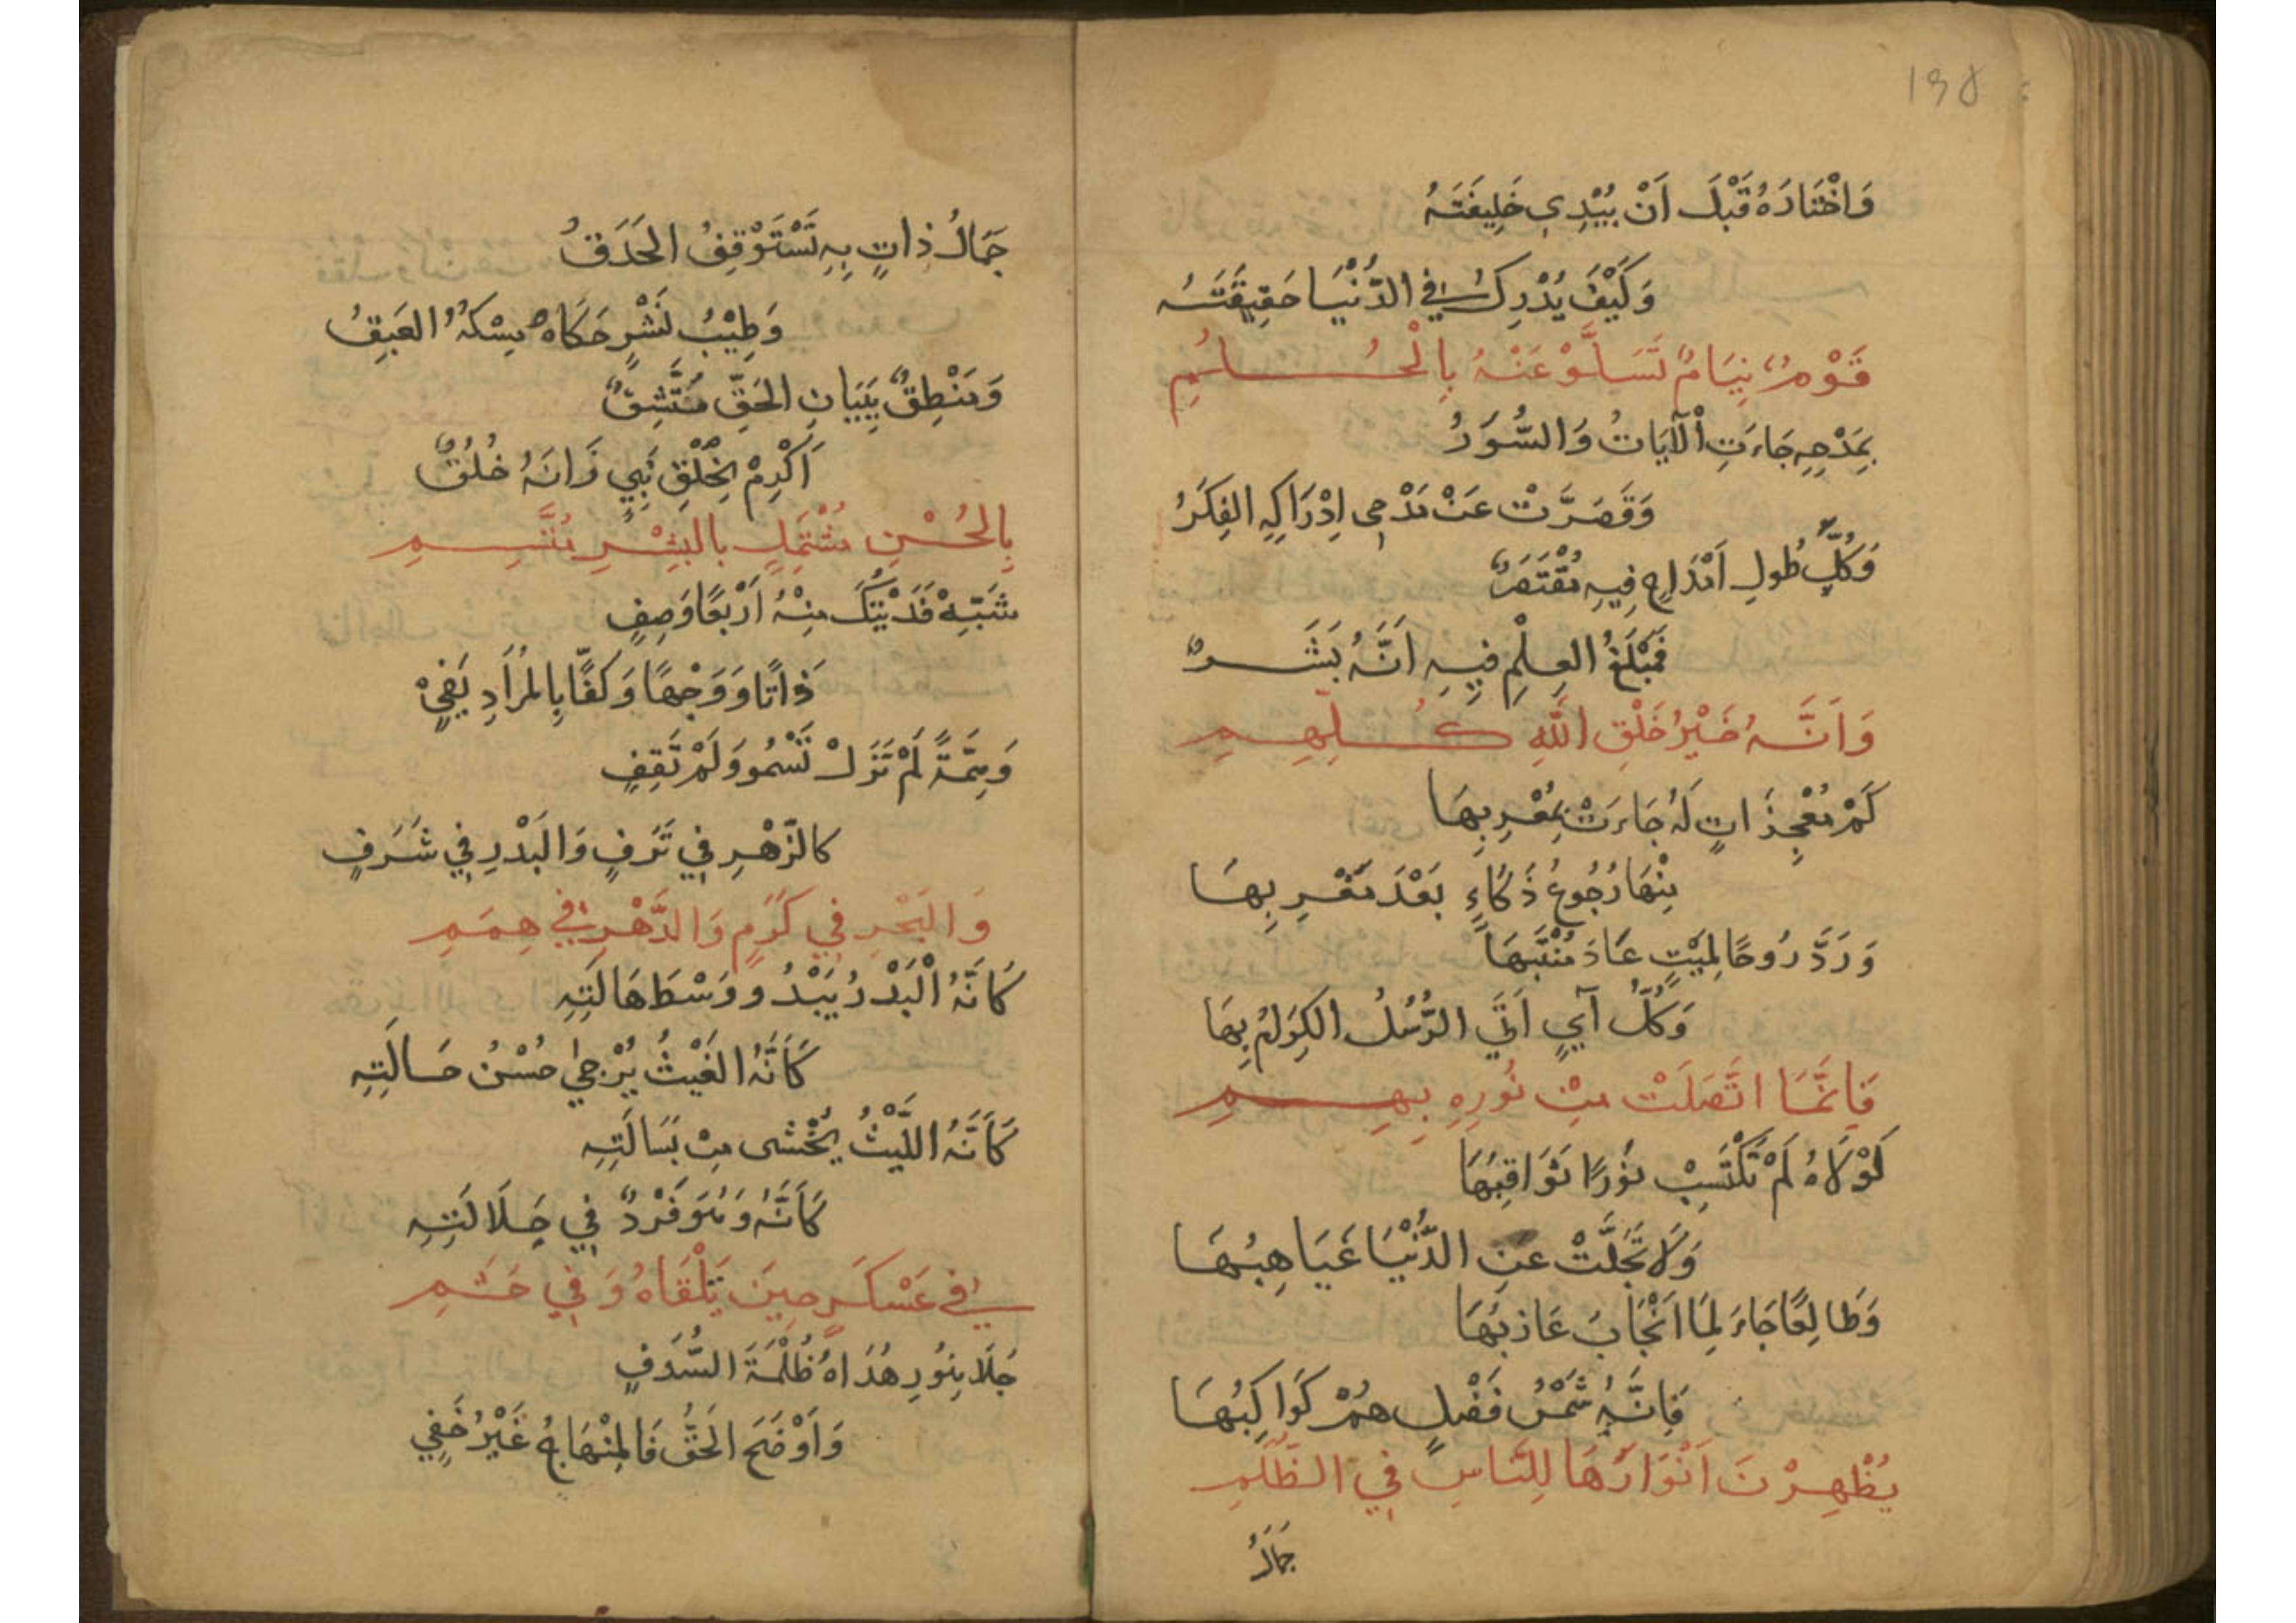 ١٣٥
وَاخْتَارَهُ قَبْلَ اَنْ يُبْدِي خَلِيفَتَهُ
وَكَيْفَ يُدْرِكُ فِي الدُّنْيَا حَقِيقَتَهُ
قَوْمٌ نِيَامٌ تَسَلَّوْ عَنْهُ بِالْحُلُمِ
بِمَدْحِهِ جَاءَتِ الْآيَاتُ وَالسُّوَرُ
وَقَصَّرَتْ عَنْ مَدْحِي اِدْرَاكِهِ الفِكَرُ
وَكُلُّ طُولِ اَمْدَاحٍ فِيهِ مُقْتَصَرٌ
فَمَبْلَغُ العِلْمِ فِيهِ اَنَّهُ بَشَرٌ
وَاَنَّهُ خَيْرُ خَلْقِ اللّٰهِ كُلِّهِمِ
كَمْ مُعْجِزَاتٍ لَهُ جَاءَتْ بِمُغْرِبِهَا
مِنْهَا رُجُوعُ ذُكَاءٍ بَعْدَ مَغْرِبِهَا
وَرَدَّ رُوحًا لِمَيْتٍ عَادَ مُنْتَبِهَا
وَكُلُّ آيٍ اَتَى الرُّسُلُ الكِرَامُ بِهَا
فَاِنَّمَا اتَّصَلَتْ مِنْ نُورِهِ بِهِمِ
لَوْلَاهُ لَمْ تَكْتَسِبْ نُورًا ثَوَاقِبُهَا
وَلَا تَجَلَّتْ عَنِ الدُّنْيَا غَيَاهِبُهَا
وَطَالِعًا جَاءَ لِمَا اَنْجَابَ عَازِبُهَا
فَاِنَّهُ شَمْسُ فَضْلٍ هُمْ كَوَاكِبُهَا
يُظْهِرْنَ اَنْوَارَهَا لِلنَّاسِ فِي الظُّلَمِ
جَمَالُ
جَمَالُ ذَاتٍ بِهِ تَسْتَوْقِفُ الحَدَقُ
وَطِيْبُ نَشْرٍ حَكَاهُ مِسْكُهُ العَبِقُ
وَمَنْطِقٌ بِبَيَانِ الحَقِّ مُتَّسِقٌ
اَكْرِمْ بِخَلْقِ نَبِيٍ زَانَهُ خُلُقٌ
بِالحُسْنِ مُشْتَمِلٍ بِالبِشْرِ مُتَّسِمِ
شَبِّهْ فَدَيْتُكَ مِنْهُ اَرْبَعًا وَصِفِ
ذَاتًا وَوَجْهًا وَكَفًّا بِالمُرَادِ يَفِيْ
وَهِمَّةً لَمْ تَزَلْ تَسْمُو وَلَمْ تَقِفِ
كالزَّهْرِ فِي تَرَفٍ وَالبَدْرِ فِي شَرَفٍ
وَالبَحْرِ فِي كَرَمٍ وَالدَّهْرِ فِي هِمَمِ
كَاَنَّهُ الْبَدْرُ يَبْدُو وَسْطَ هَالَتِهِ
كَاَنَّهُ الغَيْثُ يُرْجٰى حُسْنُ حَالَتِهِ
كَاَنَّهُ اللَّيْثُ يُخْشى مِنْ بَسَالَتِهِ
كَاَنَّهُ وَهُوَ فَرْدٌ فِي جَلَالَتِهِ
فِي عَسْكَرٍ حِينَ تَلْقَاهُ وَفِي حَشَمِ
جَلَا بِنُورِ هُدَاهُ ظُلْمَةَ السُّدَفِ
وَاَوْضَحَ الحَقَّ فَالمِنْهَاجُ غَيْرُ خَفِي